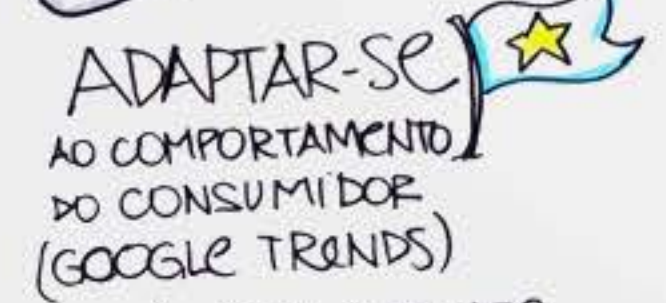 ADAPTAR-SE
AO COMPORTAMENTO
DO CONSUMIDOR
(GOOGLE TRENDS)